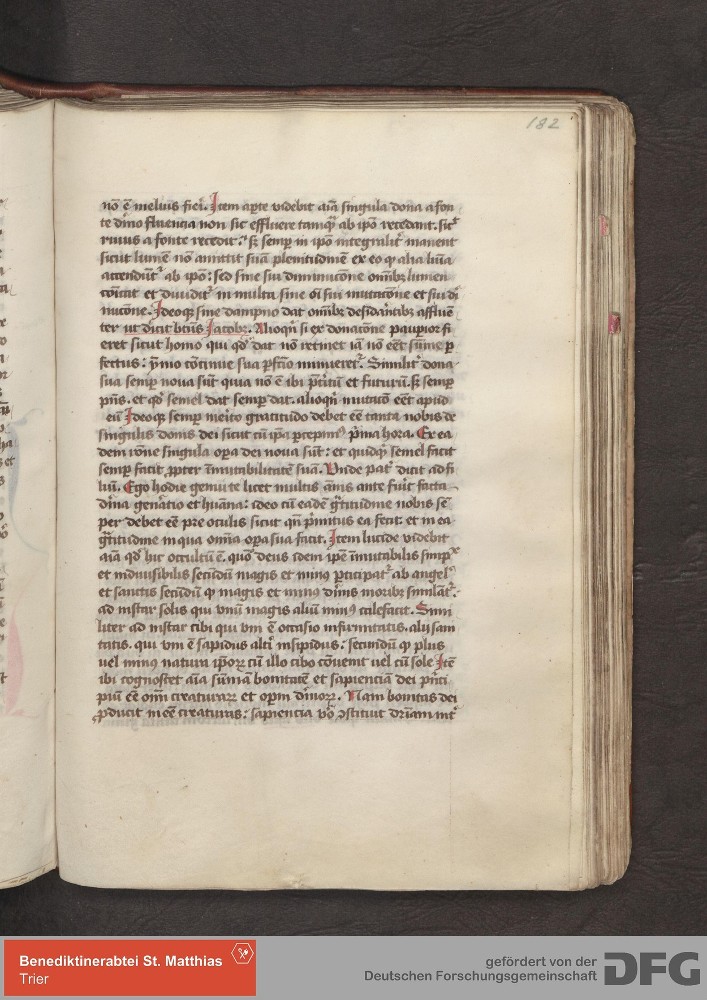 182
nō ē melius fieri. Item aperte videbit aīa singula dona a fon
te dīno fluencia non sic effluere tamqȝ ab ipō recedant. sic
riuus a fonte recedit. sȝ semp in ipō integralitˢ manent
sicut lumē nō amittit suā plenitudinē ex eo qȝ alia luīa
accendūtˢ ab ipō: sed sine sui diminucōne omībȝ lumen
cōicat et diuiditˢ in multa sine oī sui mutacōne et sui di
minucōne. Ideoqȝ sine dampno dat omībȝ desidātibȝ afflue
ter ut dicit btūs Iacobȝ. Alioqn si ex donacōne paupior fi
eret sicut homo qui qd dat nō retinet iā nō eēt sūme p
fectus: ymo cōtinue sua pfcīo minueretˢ. Similitˢ dona
sua semp noua sūt quia nō ē ibi pˢtitū et futurū. sȝ semp
pn̄s. et qd semel dat semp dat. alioqn mutatō eēt apud
eū Ideoqȝ semp merito gratitudo debet eē tanta nobis de
singulis donis dei sicut cū ipa pcepimˢ pˢma hora. Ex ea
dem rōne singula opa dei noua sūt: et quidqȝ semel facit
semp facit ppter īmutabilitatē suā. Vnde patˢ dicit ad fi
liū. Ego hodie genui te licet multis annis ante fuit facta
dīna genatio et huāna: ideo cū eadē gˢtitudine nobis sē
per debet eē pre oculis sicut qn pˢmitus ea fecit: et in ea
gˢtitudine in qua om̄ia opa sua facit. Item lucide videbit
aīa qd hic occultū ē. quō deus idem ipē īmutabilis simpxˢ
et indiuisibilis secūdū magis et minˢ pˢticipatˢ ab angelˢ
et sanctis secūdū qȝ magis et minˢ diīnis moribȝ similātˢ.
ad instar solis qui vnū magis aliū minˢ calefacit. Simi
liter ad instar cibi qui vni ē occasio infirmitatis. alij sani
tatis. qui vni ē sapidus altˢi insipidus: secundū qȝ plus
uel minˢ natura ipoꝝ cū illo cibo cōuenit uel cū sole Itē
ibi cognoscet aīa sūmā bonitatē et sapienciā dei pˢnci
piū eē omī creaturaꝝ et opm dīnoꝝ. Nam bonitas dei
pducit in eē creaturas: sapiencia vō ꝯstituit driām intˢ
Benediktinerabtei St. Matthias
Trier
gefördert von der
Deutschen Forschungsgemeinschaft
DFG